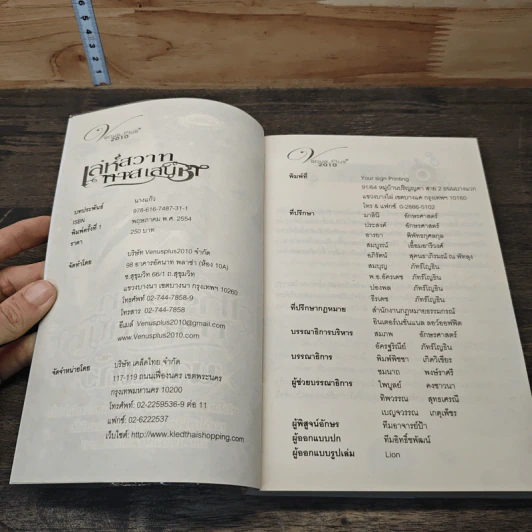 Venus Plus
2010
เล่ห์สวาท
ทาสเสน่หา
บทประพันธ์ นางแก้ว
ISBN 978-616-7487-31-1
พิมพ์ครั้งที่ 1 พฤษภาคม พ.ศ. 2554
ราคา 250 บาท
จัดทำโดย บริษัท Venusplus2010 จำกัด
98 อาคารอัคนาท พลาซ่า (ห้อง 10A)
ซ.สุขุมวิท 66/1 ถ.สุขุมวิท
แขวงบางนา เขตบางนา กรุงเทพฯ 10260
โทรศัพท์ 02-744-7858-9
โทรสาร 02-744-7858
อีเมล์ Venusplus2010@gmail.com
www.venusplus2010.com
จัดจำหน่ายโดย บริษัท เคล็ดไทย จำกัด
117-119 ถนนเฟื่องนคร เขตพระนคร
กรุงเทพมหานคร 10200
โทรศัพท์: 02-2259536-9 ต่อ 11
แฟกซ์: 02-6222537
เว็บไซต์: http://www.kledthaishopping.com
Venus Plus
2010
พิมพ์ที่ Your sign Printing
91/64 หมู่บ้านเจริญญดา สาย 2 ถนนบางแวก
แขวงบางไผ่ เขตบางแค กรุงเทพฯ 10160
โทร & แฟกซ์ 0-2886-5102
ที่ปรึกษา มาลินี อักษรศาสตร์
ประสงค์ อักษรศาสตร์
อางยา พิพัทธกุศลกุล
สมบูรณ์ เอื้อมขารีนงค์
อภิรัตน์
สมบุญ ภัทร์โญธิน
พ.อ.อัครเดช ภัทร์โญธิน
ปองพล ภัทร์โญธิน
ธีรเดช ภัทร์โญธิน
ที่ปรึกษากฎหมาย สำนักงานกฎหมายธรรมกรณ์
อินเตอร์เนชั่นแนล ลอว์ออฟฟิต
บรรณาธิการบริหาร สมภพ อักษรศาสตร์
อัครฐรินีย์ ภัทร์โญธิน
บรรณาธิการ พิมพ์พิชชา เกิดวิเชียร
ชมนาถ พงษ์ราศรี
ผู้ช่วยบรรณาธิการ ไพบูลย์ คงชาวนา
ทิพวรรณ สุทธเศรณี
เบญจวรรณ เกตุเพียร
ผู้พิสูจน์อักษร ทีมอาจารย์ป้า
ผู้ออกแบบปก ทีมสิทธิ์ชพัฒน์
ผู้ออกแบบรูปเล่ม Lion